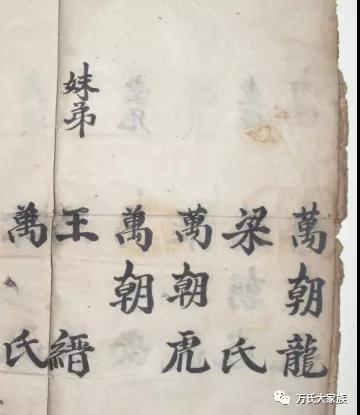 萬朝龍
梁氏
萬朝虎
萬朝
妹弟 王縉
萬氏
万氏大家族